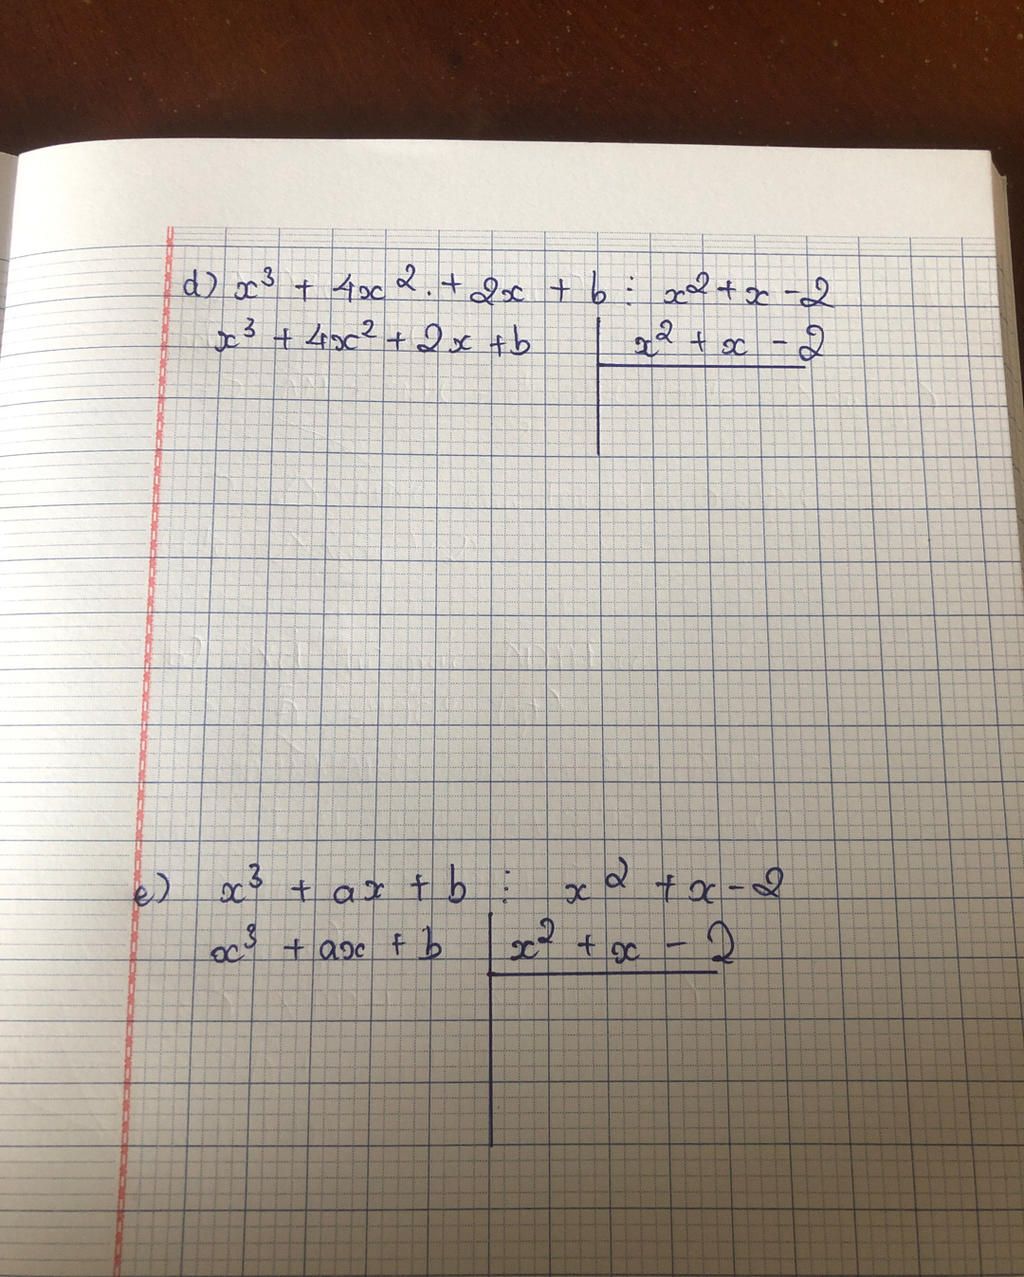 d) x³ + 4x². + 2x + b ⋮ x² + x - 2
x³ + 4x² + 2x + b | x² + x - 2
e) x³ + ax + b ⋮ x² + x - 2
x³ + ax + b | x² + x - 2